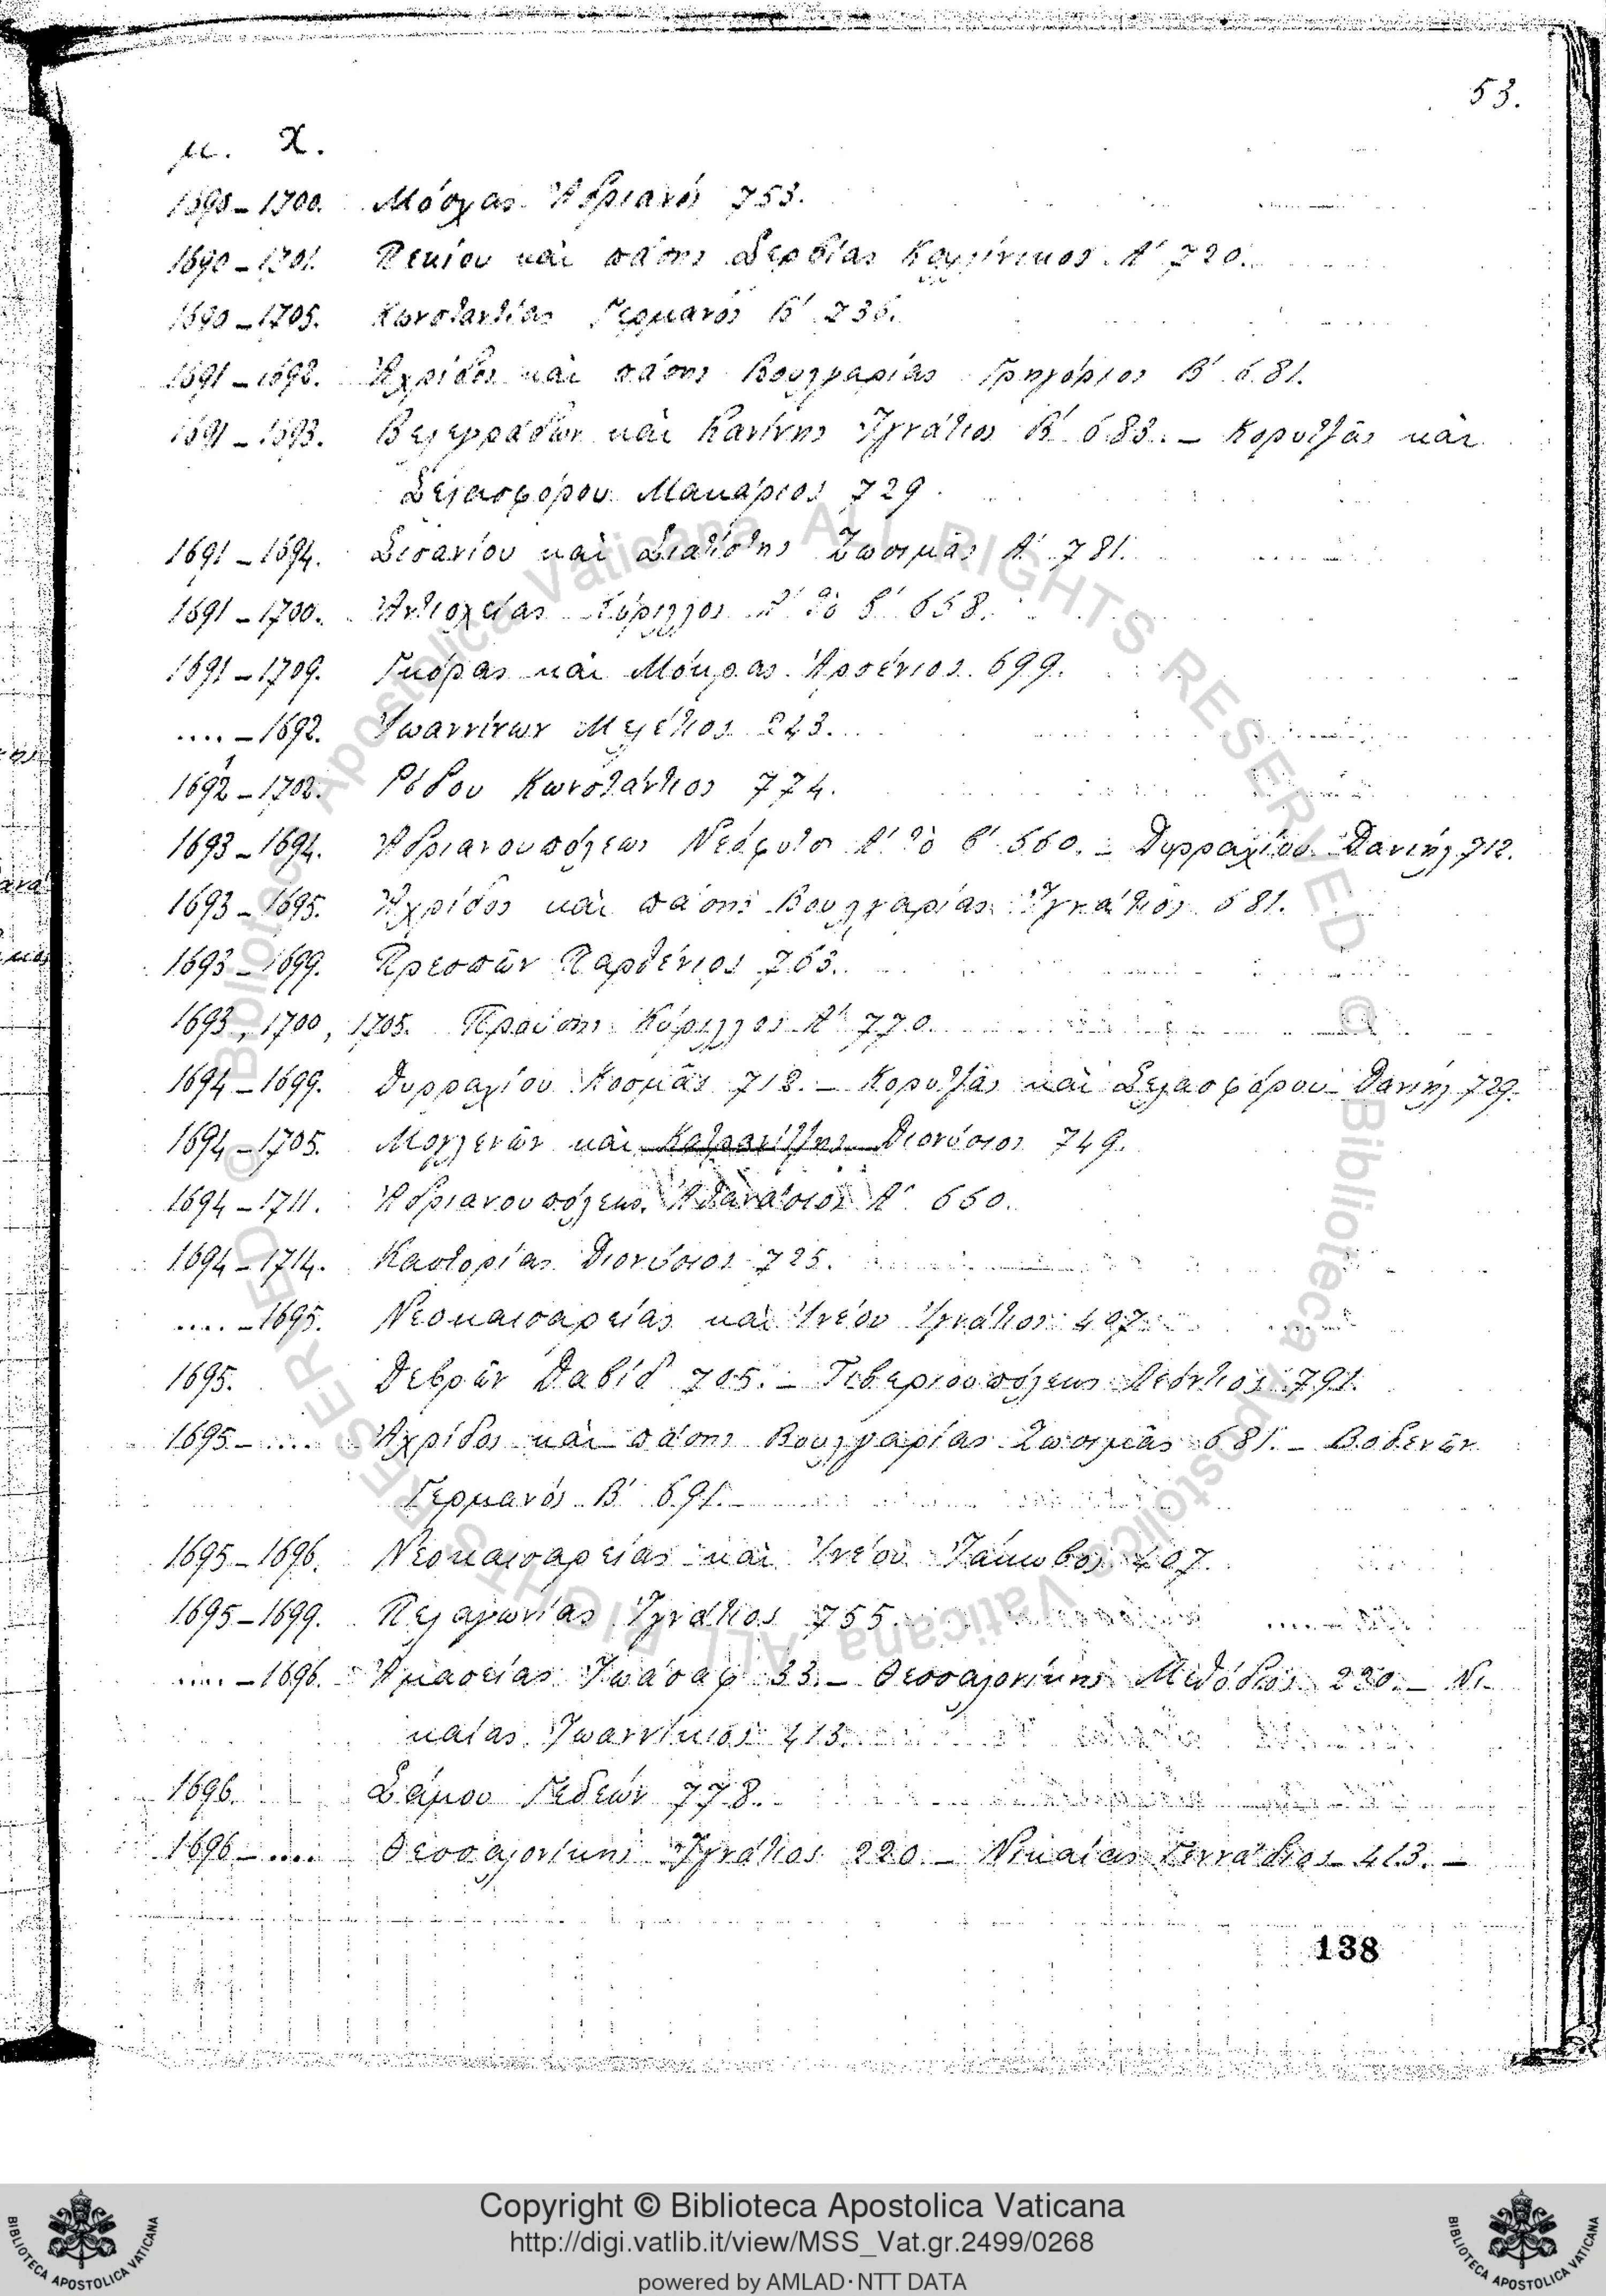 53.
μ. Χ.
1690 – 1700. Μόσχας Ἀδριανός 753.
1690 – 1701. Πεκίου καὶ πάσης Σερβίας Καλλίνικος Α′ 720.
1690 – 1705. Κωνσταντίας Γερμανός Β′ 236.
1691 – 1693. Ἀχρίδος καὶ πάσης Βουλγαρίας Γρηγόριος Β′ 681.
1691 – 1693. Βελεγράδων καὶ Κανίνης Ἰγνάτιος Β′ 683. – Κορυτζᾶς καὶ
Σελασφόρου Μακάριος 729.
1691 – 1694. Σισανίου καὶ Σιατίστης Ζωσιμᾶς Α′ 781.
1691 – 1700. Ἀντιοχείας Κύριλλος Α′ τὸ β′ 658.
1691 – 1709. Γκόρας καὶ Μόκρας Ἀρσένιος 699.
.... – 1692. Ἰωαννίνων Μελέτιος 243.
1692 – 1702. Ρόδου Κωνστάντιος 774.
1693 – 1694. Ἀδριανουπόλεως Νεόφυτος Α′ τὸ β′ 660. – Δυρραχίου Δανιήλ 712.
1693 – 1695. Ἀχρίδος καὶ πάσης Βουλγαρίας Ἰγνάτιος 681.
1693 – 1699. Πρεσπῶν Παρθένιος 763.
1693, 1700, 1705. Προύσης Κύριλλος Α′ 770.
1694 – 1699. Δυρραχίου Κοσμᾶς 712. – Κορυτζᾶς καὶ Σελασφόρου Δανιήλ 729.
1694 – 1705. Μογλενῶν καὶ Διονύσιος 749.
1694 – 1711. Ἀδριανουπόλεως Ἀθανάσιος Α′ 660.
1694 – 1714. Καστορίας Διονύσιος 725.
.... – 1695. Νεοκαισαρείας καὶ Ἰνέου Ἰγνάτιος 407.
1695. Δεβρῶν Δαβίδ 705. – Τιβεριουπόλεως Λεόντιος 791.
1695 – .... Ἀχρίδος καὶ πάσης Βουλγαρίας Ζωσιμᾶς 681. – Βοδενῶν
Γερμανός Β′ 691.
1695 – 1696. Νεοκαισαρείας καὶ Ἰνέου Ἰάκωβος 407.
1695 – 1699. Πελαγωνίας Ἰγνάτιος 755.
.... – 1696. Ἀμασείας Ἰωάσαφ 33. – Θεσσαλονίκης Μεθόδιος 220. – Νι-
καίας Ἰωαννίκιος 413.
1696. Σάμου Γεδεών 778.
1696 – .... Θεσσαλονίκης Ἰγνάτιος 220. – Νικαίας Γεννάδιος 413. –
138
Copyright © Biblioteca Apostolica Vaticana
http://digi.vatlib.it/view/MSS_Vat.gr.2499/0268
powered by AMLAD·NTT DATA